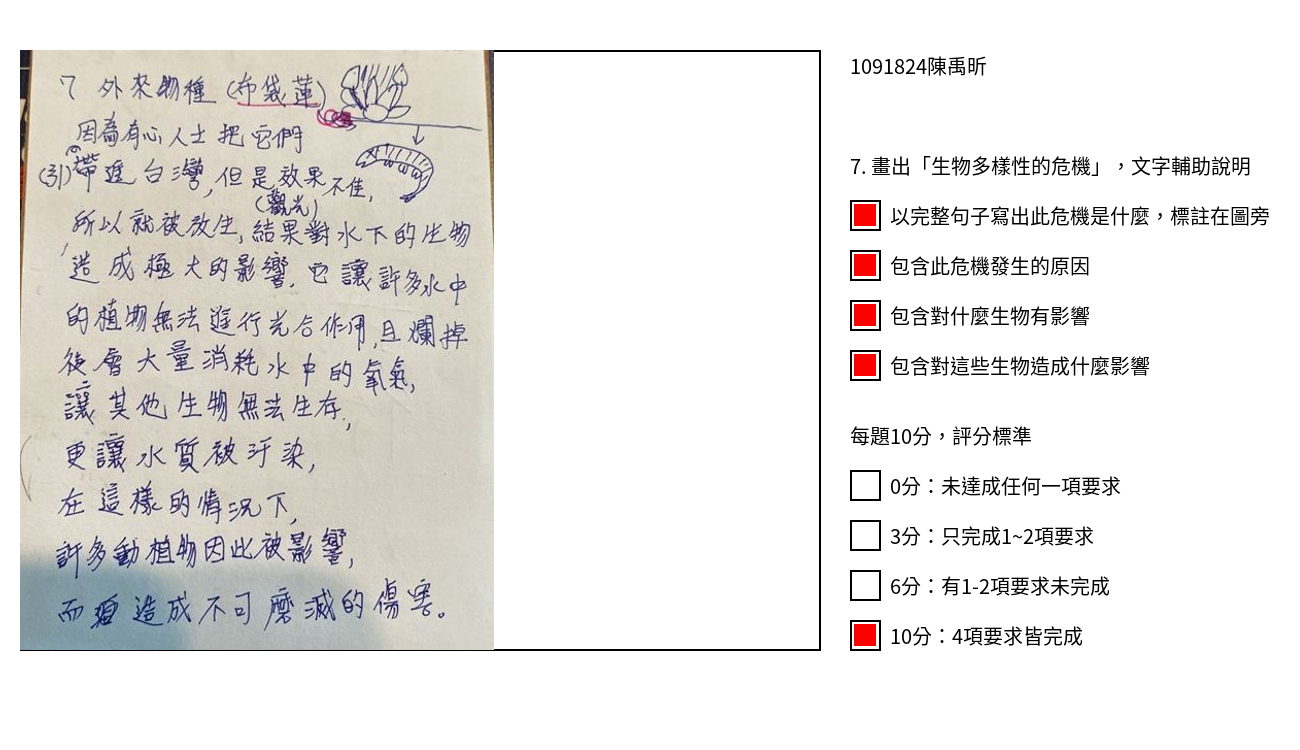 7 外來物種 (布袋蓮)
因為有心人士把它們
(引)帶進台灣,但是效果不佳,
(觀光)
所以就被放生,結果對水下的生物
造成極大的影響,它讓許多水中
的植物無法進行光合作用,且爛掉
後會大量消耗水中的氧氣,
讓其他生物無法生存,
更讓水質被汙染,
在這樣的情況下,
許多動植物因此被影響,
而造成不可磨滅的傷害。
1091824陳禹昕
7. 畫出「生物多樣性的危機」,文字輔助說明
以完整句子寫出此危機是什麼,標註在圖旁
包含此危機發生的原因
包含對什麼生物有影響
包含對這些生物造成什麼影響
每題10分,評分標準
0分:未達成任何一項要求
3分:只完成1~2項要求
6分:有1-2項要求未完成
10分:4項要求皆完成